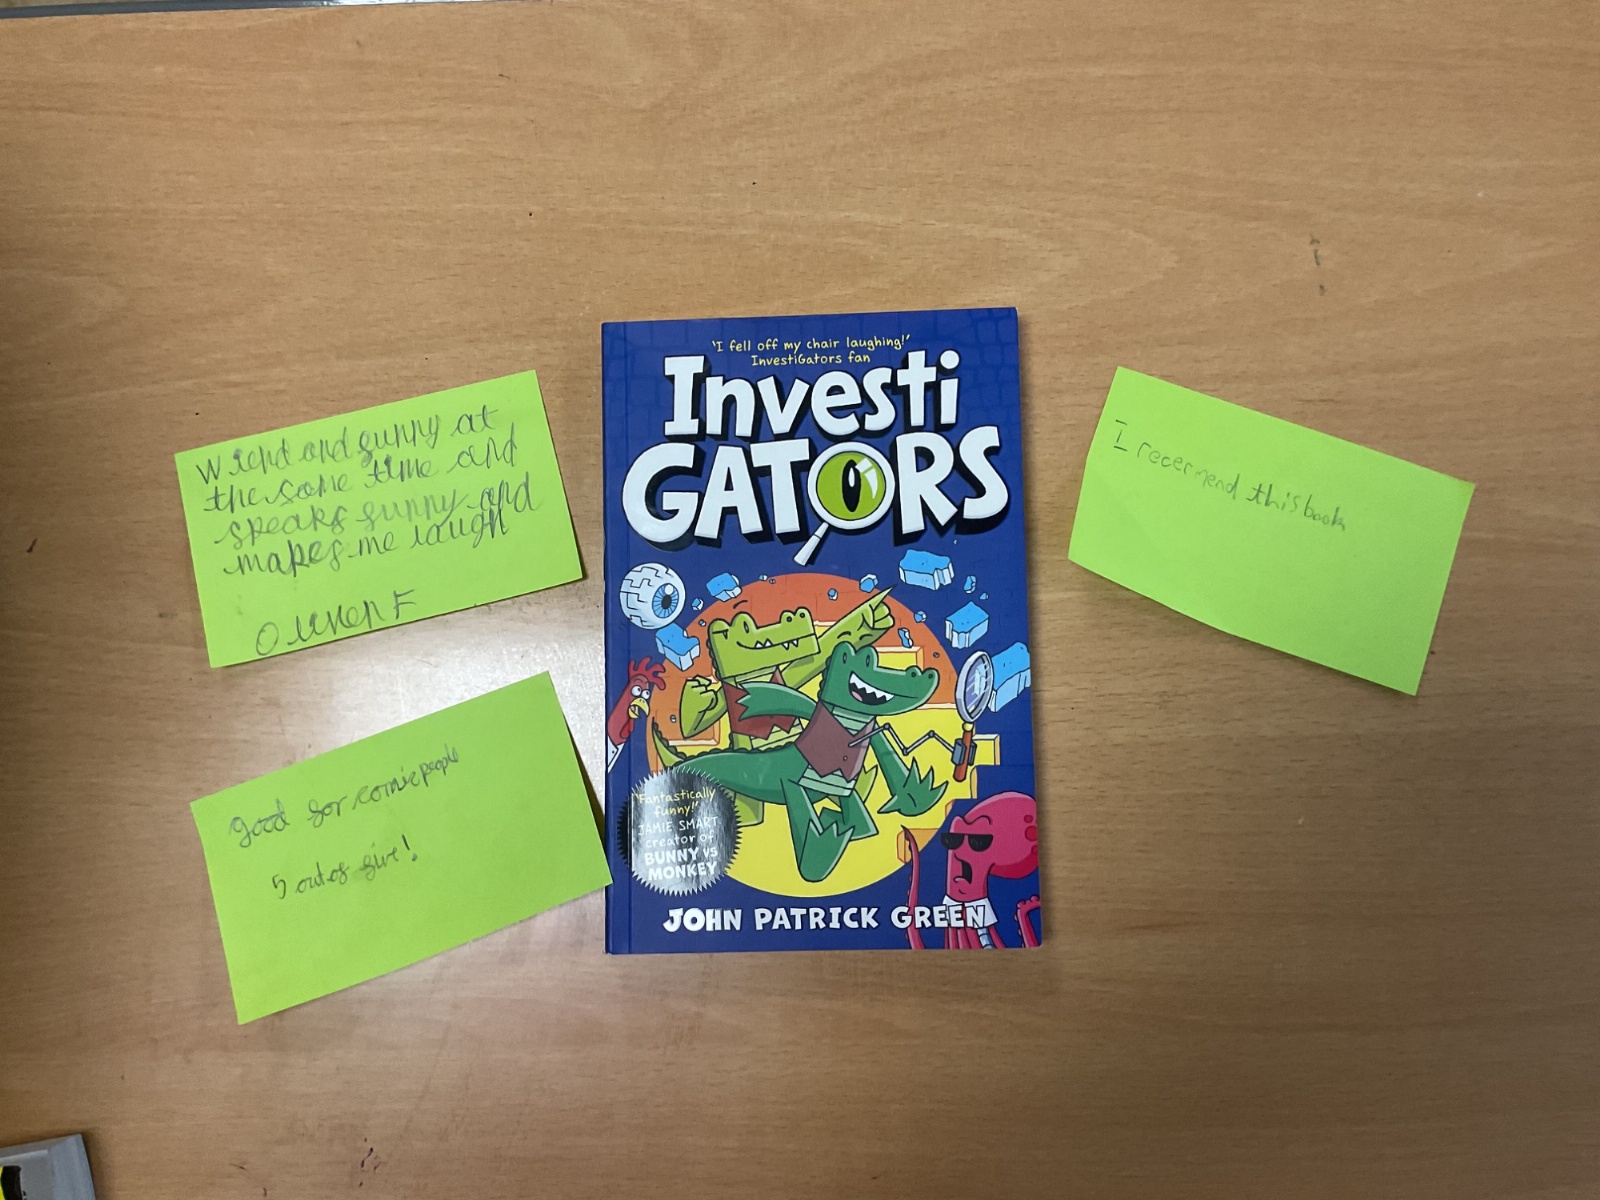 wriend and funny at
the same time and
speaks funny and
makes me laugh
good for comic people
5 out of five!
'I fell off my chair laughing!'
InvestiGators fan
Investi
GATORS
'Fantastically
funny!'
JAMIE SMART
creator of
BUNNY VS
MONKEY
JOHN PATRICK GREEN
I recermend this book